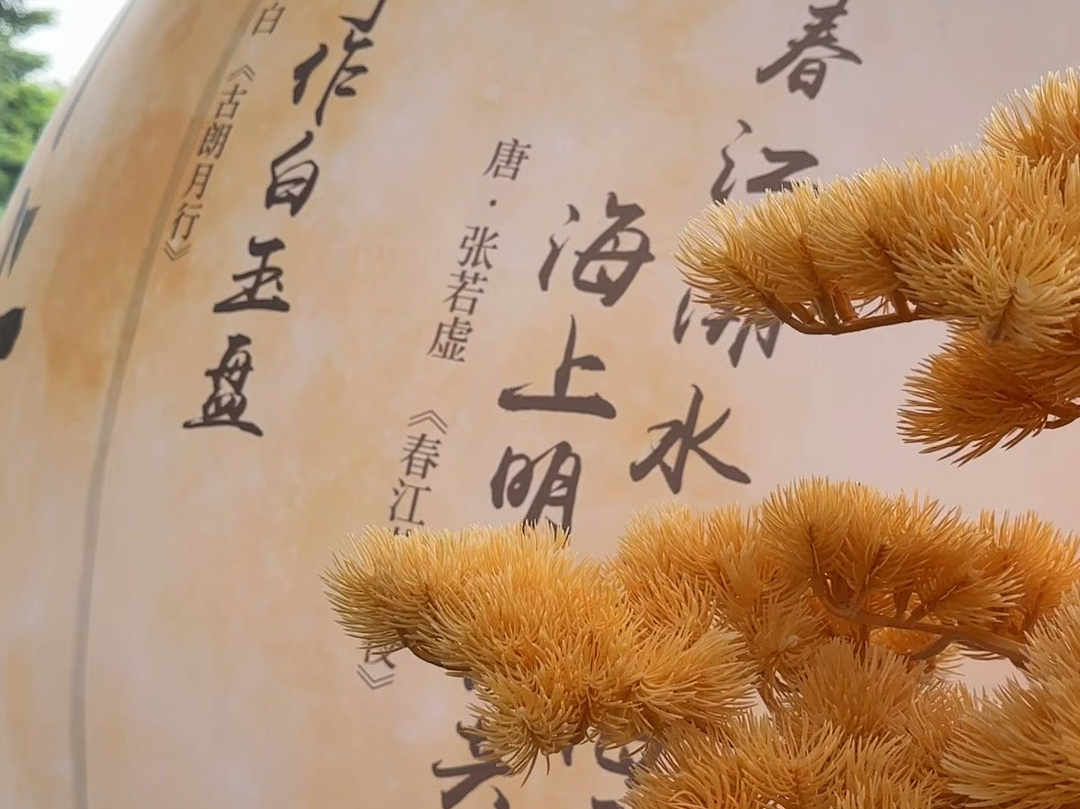 春江潮水
海上明共
唐·张若虚《春江夜》
作白玉盘
白《古朗月行》